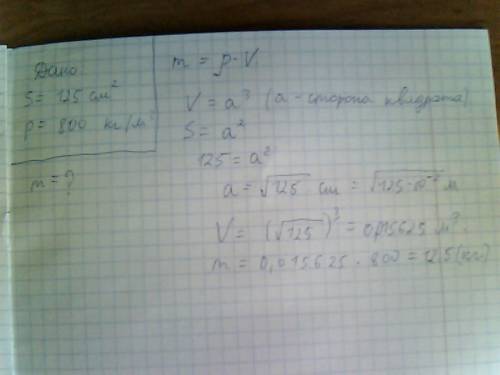 Дано:
S = 125 см²
p = 800 кг/м³
m = ?
m = p·V
V = a³ (a - сторона квадрата)
S = a²
125 = a²
a = √125 см = √125·10⁻⁴ м
V = (√125)³ = 0,015625 м³.
m = 0,015625 · 800 = 12,5 (кг)